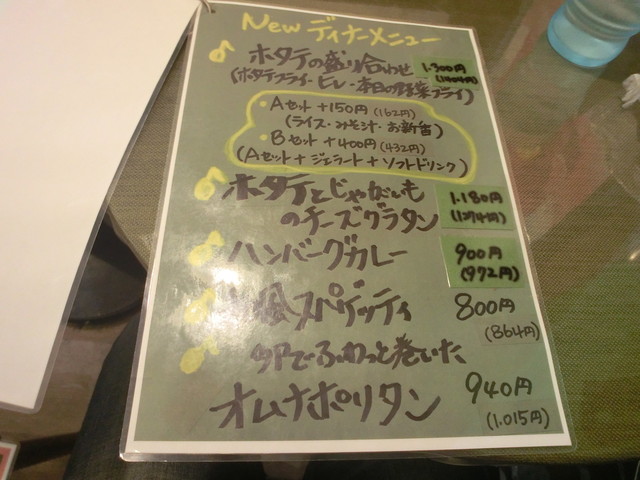 New ディナーメニュー
ホタテの盛り合わせ 1.300円
(ホタテフライ・ヒレ・本日の野菜フライ) (1404円)
・Aセット +150円(162円)
(ライス・みそ汁・お新香)
・Bセット +400円(432円)
(Aセット + ジェラート + ソフトドリンク)
ホタテとじゃがいも 1.180円
のチーズグラタン (1274円)
ハンバーグカレー 900円
(972円)
風スパゲッティ 800円
(864円)
卵でふわっと巻いた
オムナポリタン 940円
(1.015円)